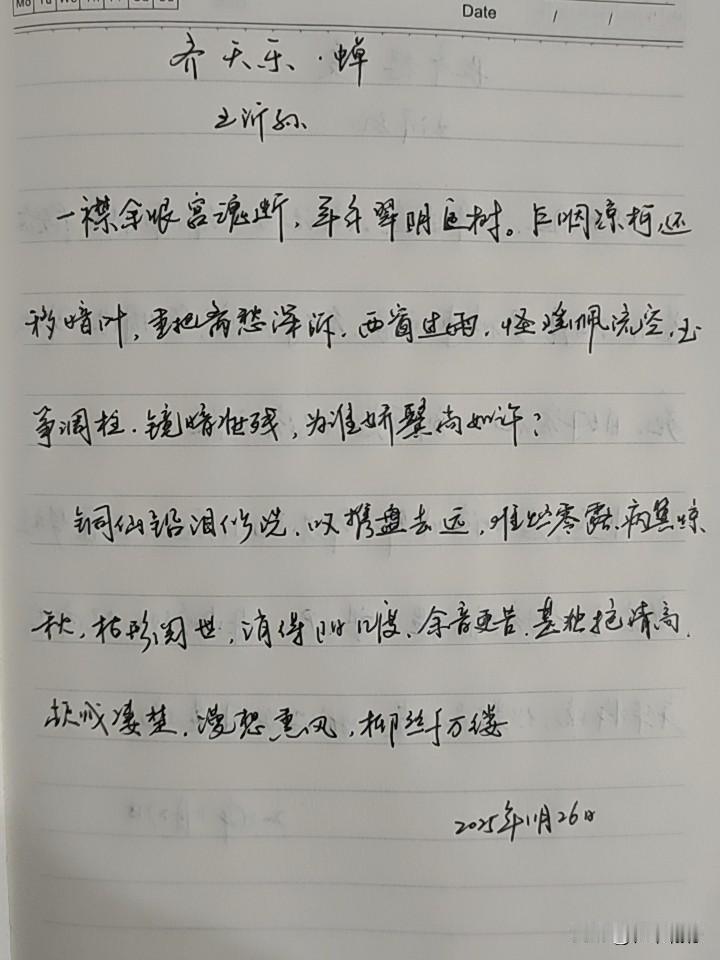 Mo Tu We Th Fr Sa Su
Date / /
齐天乐·蝉
王沂孙
一襟余恨宫魂断，年年翠阴庭树。乍咽凉柯，还
移暗叶，重把离愁深诉。西窗过雨，怪瑶佩流空，玉
筝调柱。镜暗妆残，为谁娇鬓尚如许？
铜仙铅泪似洗，叹携盘去远，难贮零露。病翼惊
秋，枯形阅世，消得斜阳几度。余音更苦。甚独抱清高，
顿成凄楚。漫想熏风，柳丝千万缕
2025年11月26日